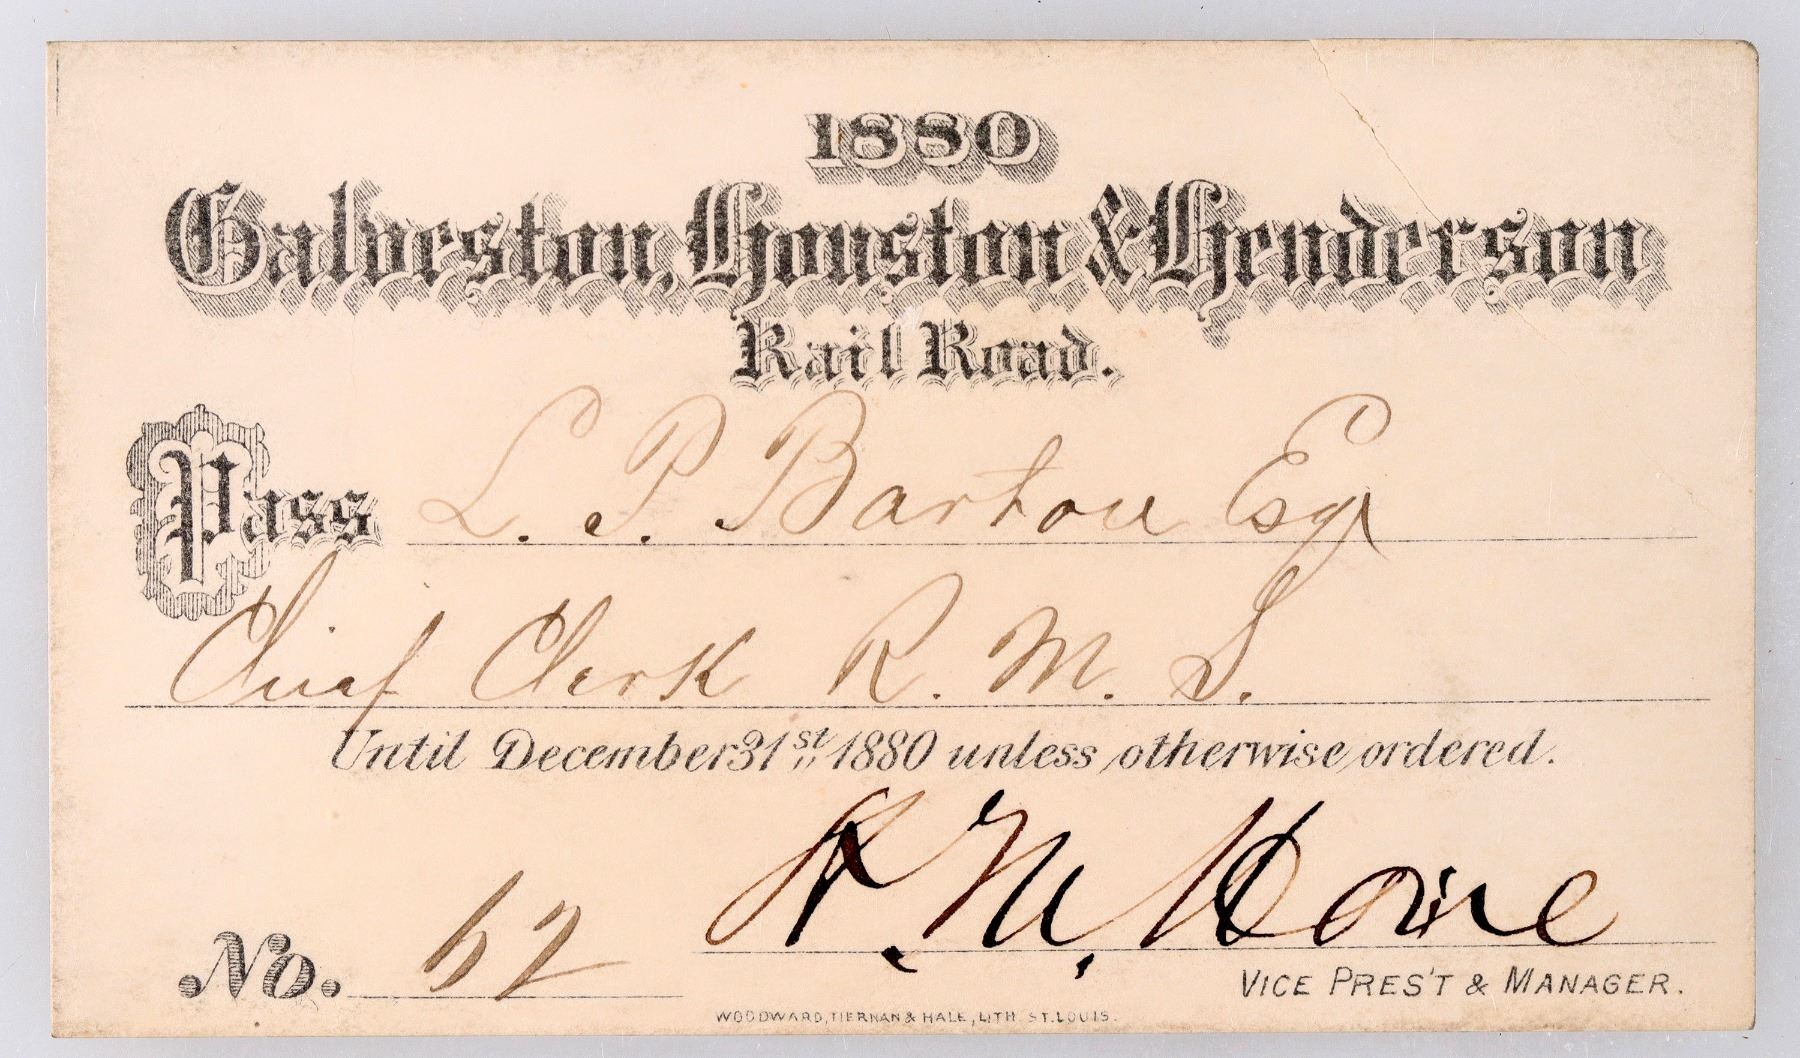 1880
Galveston, Houston & Henderson
Rail Road.
Pass L. P. Barton Esq
Chief Clerk R. M. S.
Until December 31st 1880 unless otherwise ordered.
No. 52
VICE PRES'T & MANAGER.
WOODWARD, TIERNAN & HALE, LITH. ST. LOUIS.